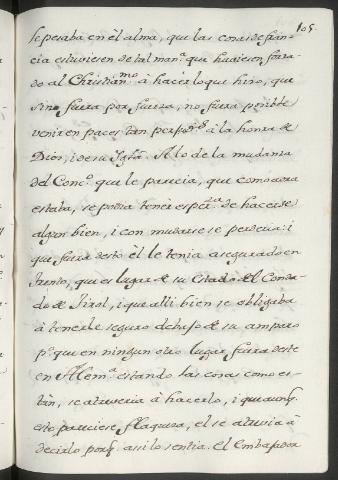 105.
le pesaba en él alma, que las cosas de fran-
cia estuviesen de tal man.ª que huviesen forza-
do al Christian.mo à hacer lo que hizo, que
sino fuera por fuerza, no fuera posible
venir en paces tan à la honra de
Dios, i de su Iglª. A lo de la mudanza
del Conc.º que le parecia, que como aora
estaba, se podia tener esper.za de hacerse
algun bien, i con mudarse se perderia: i
que fuera desto èl le tenia asegurado en
Trento, que es lugar de su Estado del Conda-
do de Tirol, i que alli bien se obligaba
à tenerle seguro debajo de su amparo
p.º que en ningun otro lugar fuera deste
en Alem.ª estando las cosas como es-
tàn, se atreveria à hacerlo, i que aunq.
esto pareciese flaqueza, el se atrevia à
decirlo porq. asi lo sentia. El Embaxador